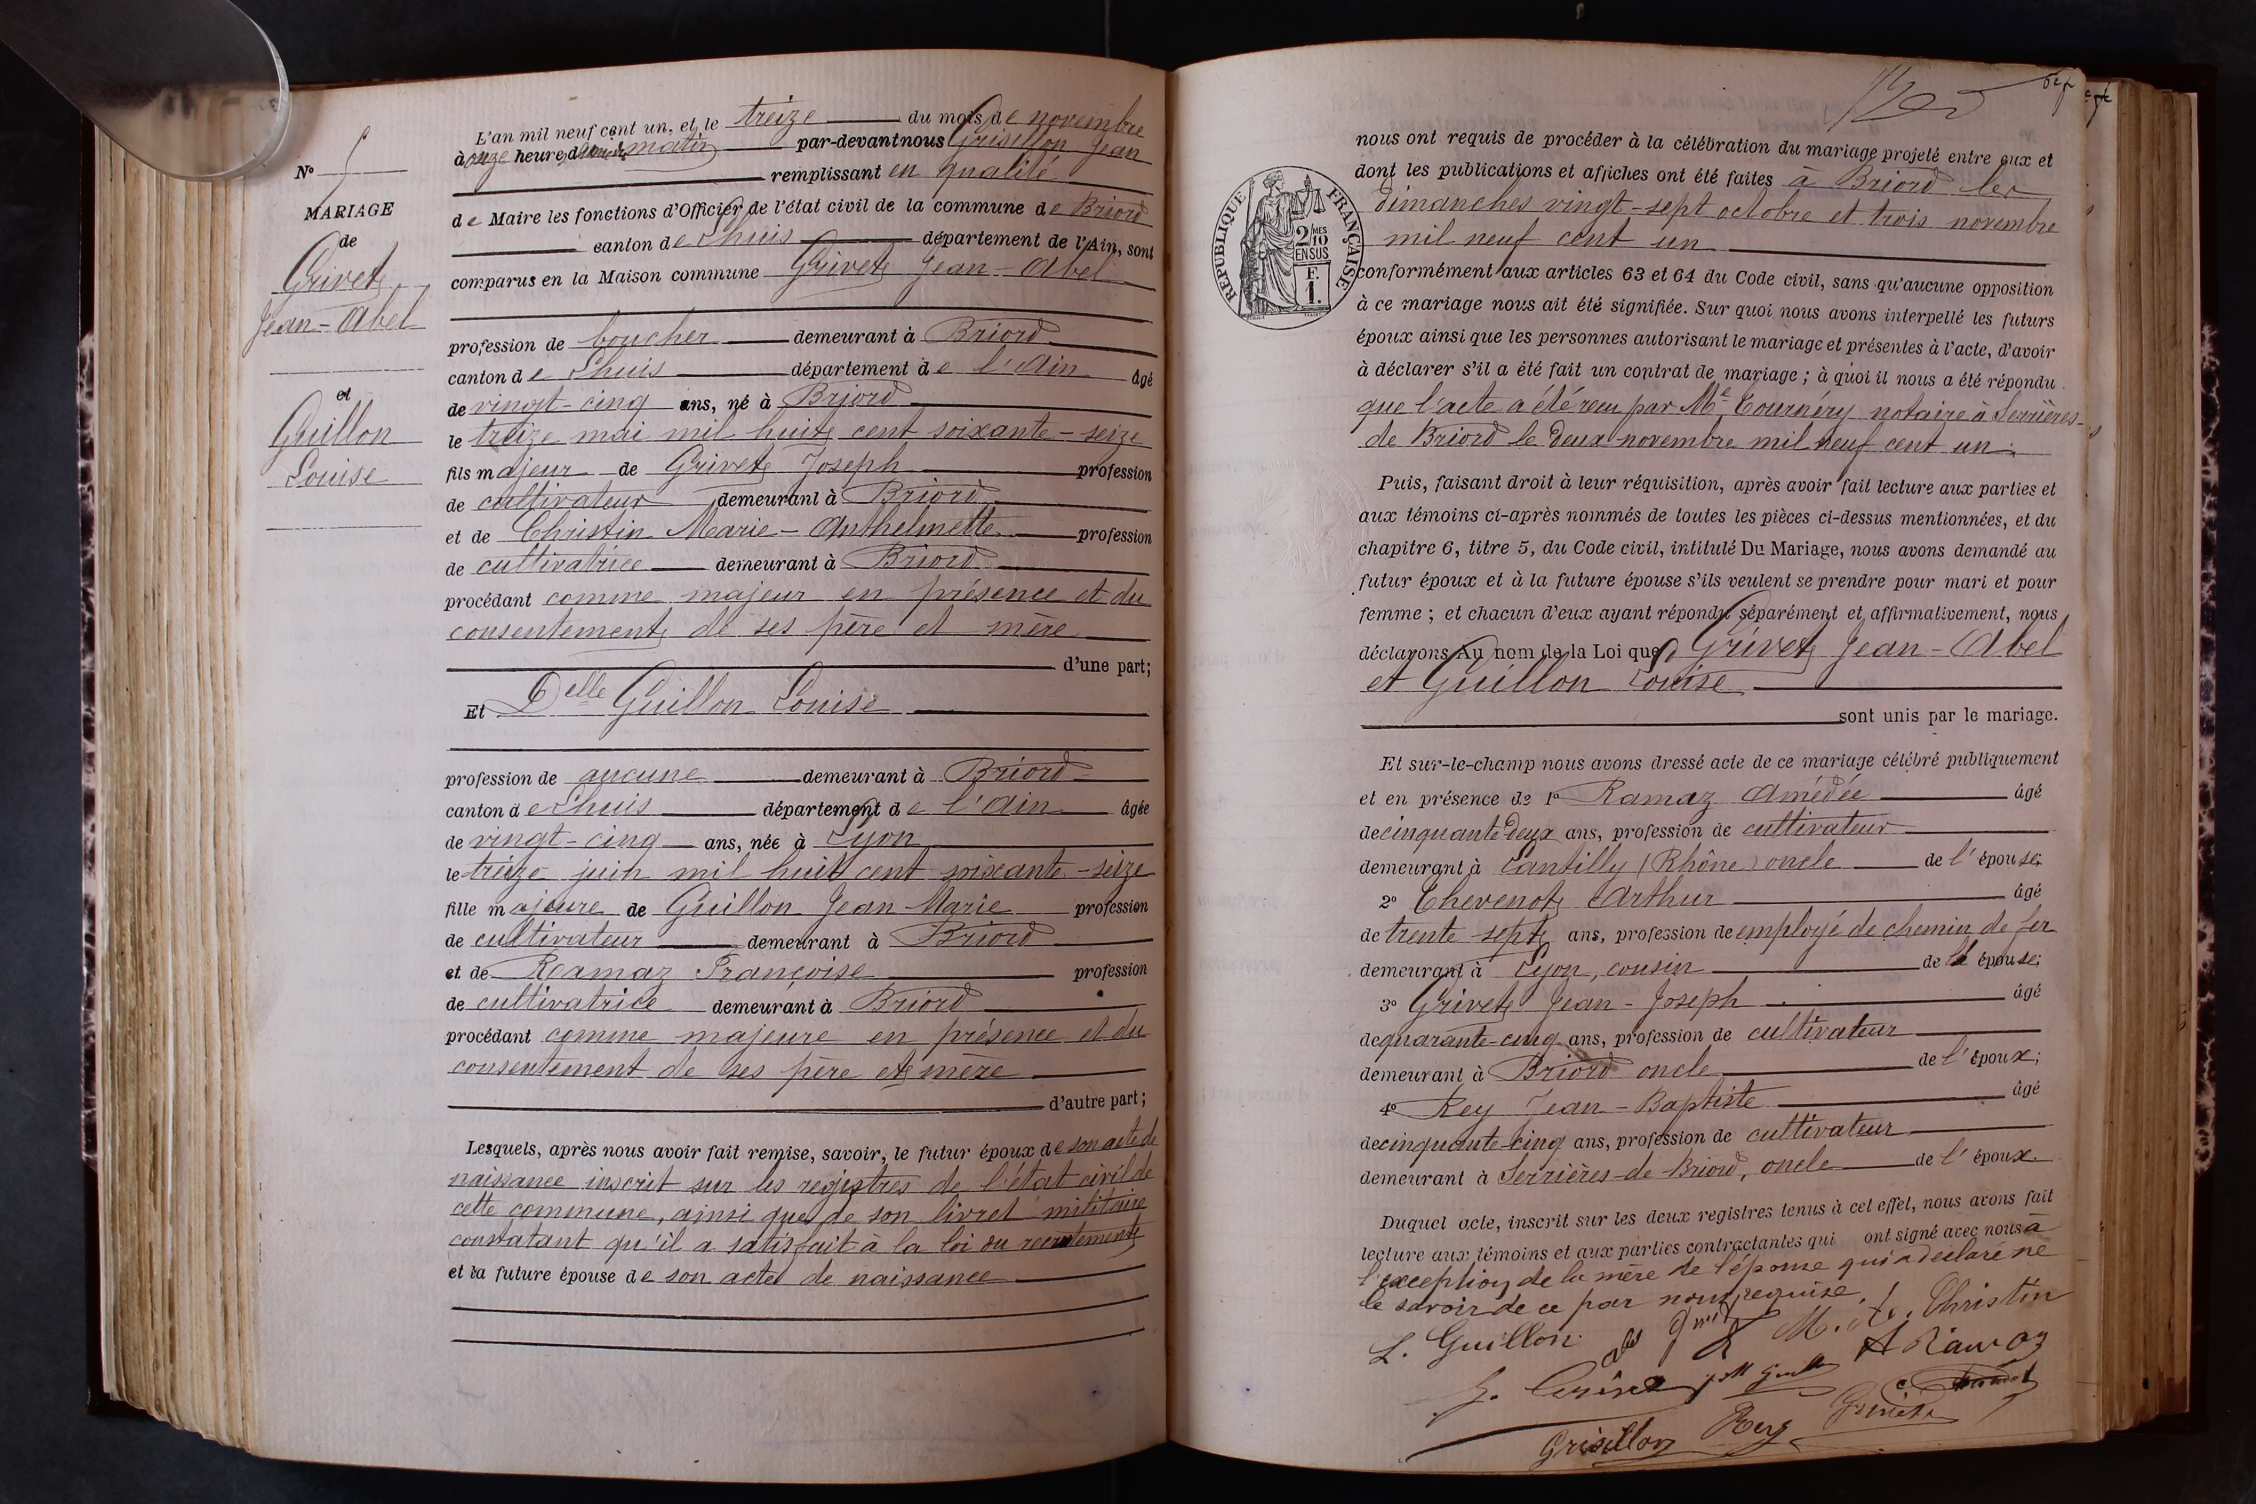 N° 5
MARIAGE
de
Grivet
Jean-Abel
et
Guillon
Louise
L'an mil neuf cent un, et le treize du mois de novembre
à onze heures du matin par-devant nous Grisillon Jean
remplissant en qualité
de Maire les fonctions d'Officier de l'état civil de la commune de Briord
canton de Lhuis département de l'Ain, sont
comparus en la Maison commune Grivet Jean-Abel
profession de boucher demeurant à Briord
canton de Lhuis département de l'Ain âgé
de vingt-cinq ans, né à Briord
le treize mai mil huit cent soixante-seize
fils majeur de Grivet Joseph profession
de cultivateur demeurant à Briord
et de Christin Marie-Anthelmette profession
de cultivatrice demeurant à Briord
procédant comme majeur en présence et du
consentement de ses père et mère
d'une part;
Et Delle Guillon Louise
profession de aucune demeurant à Briord
canton de Lhuis département de l'Ain âgée
de vingt-cinq ans, née à Lyon
le treize juin mil huit cent soixante-seize
fille majeure de Guillon Jean Marie profession
de cultivateur demeurant à Briord
et de Ramaz Françoise profession
de cultivatrice demeurant à Briord
procédant comme majeure en présence et du
consentement de ses père et mère
d'autre part;
Lesquels, après nous avoir fait remise, savoir, le futur époux de son acte de
naissance inscrit sur les registres de l'état civil de
cette commune, ainsi que de son livret militaire
constatant qu'il a satisfait à la loi du recrutement
et la future épouse de son acte de naissance
nous ont requis de procéder à la célébration du mariage projeté entre eux et
dont les publications et affiches ont été faites à Briord les
dimanches vingt-sept octobre et trois novembre
mil neuf cent un
RÉPUBLIQUE FRANÇAISE
2/10 MES
EN SUS
F.
1.
conformément aux articles 63 et 64 du Code civil, sans qu'aucune opposition
à ce mariage nous ait été signifiée. Sur quoi nous avons interpellé les futurs
époux ainsi que les personnes autorisant le mariage et présentes à l'acte, d'avoir
à déclarer s'il a été fait un contrat de mariage; à quoi il nous a été répondu
que l'acte a été reçu par Me Tournéry notaire à Serrières-
de Briord le deux novembre mil neuf cent un.
Puis, faisant droit à leur réquisition, après avoir fait lecture aux parties et
aux témoins ci-après nommés de toutes les pièces ci-dessus mentionnées, et du
chapitre 6, titre 5, du Code civil, intitulé Du Mariage, nous avons demandé au
futur époux et à la future épouse s'ils veulent se prendre pour mari et pour
femme; et chacun d'eux ayant répondu séparément et affirmativement, nous
déclarons Au nom de la Loi que Grivet Jean-Abel
et Guillon Louise
sont unis par le mariage.
Et sur-le-champ nous avons dressé acte de ce mariage célébré publiquement
et en présence de 1° Ramaz Amédée âgé
de cinquante deux ans, profession de cultivateur
demeurant à Lantilly (Rhône) oncle de l'épouse;
2° Chevenot Arthur âgé
de trente sept ans, profession de employé de chemin de fer
demeurant à Lyon, cousin de la épouse;
3° Grivet Jean-Joseph âgé
de quarante-cinq ans, profession de cultivateur
demeurant à Briord oncle de l'époux;
4° Rey Jean-Baptiste âgé
de cinquante-cinq ans, profession de cultivateur
demeurant à Serrières-de-Briord, oncle de l'époux.
Duquel acte, inscrit sur les deux registres tenus à cet effet, nous avons fait
lecture aux témoins et aux parties contractantes qui ont signé avec nous à
l'exception de la mère de l'épouse qui a déclaré ne
le savoir de ce par nous requise.
L. Guillon M. A. Christin
A Ramaz
Grisillon Rey Grivet